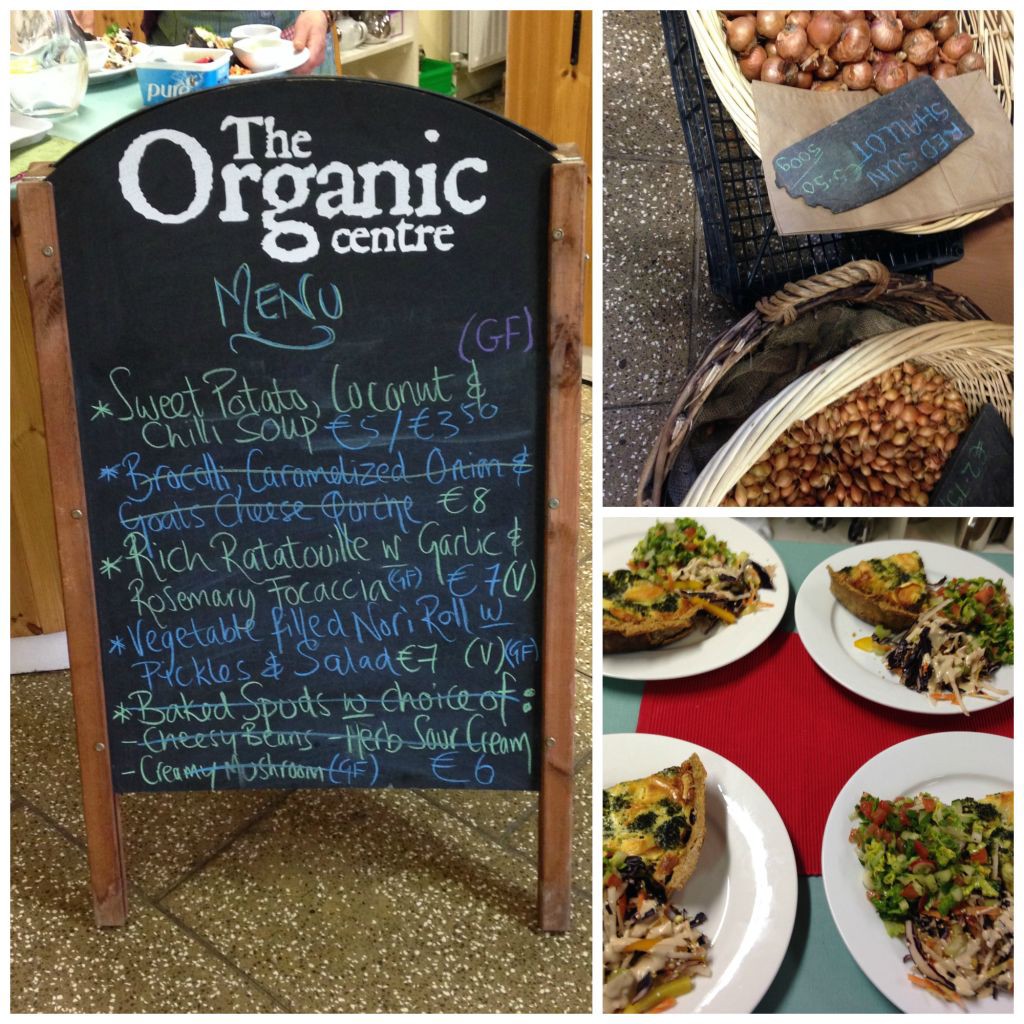 pure
The
Organic
centre
MENU
(GF)
* Sweet Potato, Coconut &
Chilli Soup €5/€3.50
* Brocolli, Caramelized Onion &
Goats Cheese Qurche €8
* Rich Ratatouille w Garlic &
Rosemary Focaccia (GF) €7 (V)
* Vegetable filled Nori Roll w
Pickles & Salad €7 (V) (GF)
* Baked Spuds w choice of:
- Cheesy Beans Herb Sour Cream
- Creamy Mushroom (GF) €6
RED SUN
SHALLOT
€5.50
500g